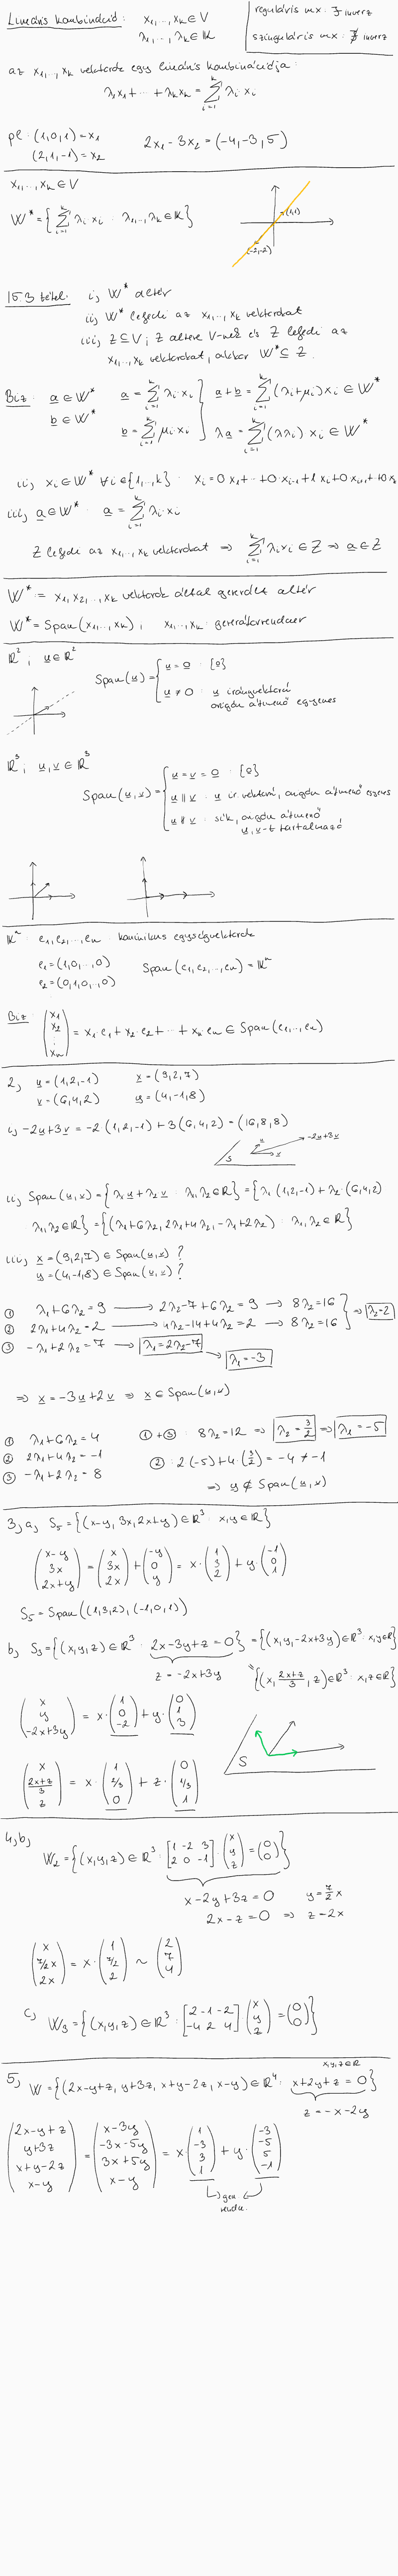 Lineáris kombináció: x₁,..,xₖ ∈ V
λ₁,..,λₖ ∈ 𝕂
reguláris mx: ∃ inverz
szinguláris mx: ∄ inverz
az x₁,..,xₖ vektorok egy lineáris kombinációja:
λ₁x₁+...+λₖxₖ = Σ_{i=1}^{k} λᵢ·xᵢ
pl: (1,0,1)=x₁
(2,1,-1)=x₂
2x₁-3x₂ = (-4,-3,5)
x₁,..,xₖ ∈ V
W* = { Σ_{i=1}^{k} λᵢ xᵢ : λ₁,..,λₖ ∈ 𝕂 }
(1,1)
(-2,-2)
15.3 tétel: i, W* altér
ii, W* lefedi az x₁,..,xₖ vektorokat
iii, Z ⊆ V; Z altere V-nek és Z lefedi az
x₁,..,xₖ vektorokat, akkor W* ⊆ Z.
Biz: a ∈ W* a = Σ_{i=1}^{k} λᵢ·xᵢ } a+b = Σ_{i=1}^{k} (λᵢ+μᵢ) xᵢ ∈ W*
b ∈ W* b = Σ_{i=1}^{k} μᵢ·xᵢ } λa = Σ_{i=1}^{k} (λλᵢ) xᵢ ∈ W*
ii, xᵢ ∈ W* ∀i ∈ {1,..,k} : xᵢ = 0·x₁+...+0·xᵢ₋₁+1·xᵢ+0·xᵢ₊₁+..+0xₖ
iii, a ∈ W* : a = Σ_{i=1}^{k} λᵢ·xᵢ
Z lefedi az x₁,..,xₖ vektorokat ⇒ Σ_{i=1}^{k} λᵢxᵢ ∈ Z ⇒ a ∈ Z
W* = x₁,x₂,..,xₖ vektorok által generált altér
W* = Span(x₁,..,xₖ), x₁,..,xₖ: generátorrendszer
ℝ²; u ∈ ℝ²
Span(u) = { u = 0 : {0}
u ≠ 0 : u irányvektorú
origón átmenő egyenes
ℝ³; u,v ∈ ℝ³
Span(u,v) = { u = v = 0 : {0}
u ∥ v : u ir. vektorú, origón átmenő egyenes
u ∦ v : sík, origón átmenő
u,v-t tartalmazó
ℝⁿ: e₁,e₂,..,eₙ: kanonikus egységvektorok
e₁=(1,0,..,0)
e₂=(0,1,0,..,0)
Span(e₁,e₂,..,eₙ) = ℝⁿ
Biz: (x₁ x₂ : xₙ) = x₁·e₁+x₂·e₂+...+xₙ·eₙ ∈ Span(e₁,..,eₙ)
2, u=(1,2,-1) x=(9,2,7)
v=(6,4,2) y=(4,-1,8)
i, -2u+3v = -2(1,2,-1)+3(6,4,2)=(16,8,8)
S u v -2u+3v
ii, Span(u,v) = {λ₁u+λ₂v : λ₁,λ₂∈ℝ} = {λ₁(1,2,-1)+λ₂(6,4,2)
λ₁,λ₂∈ℝ} = {(λ₁+6λ₂, 2λ₁+4λ₂, -λ₁+2λ₂) : λ₁,λ₂∈ℝ}
iii, x=(9,2,7) ∈ Span(u,v) ?
y=(4,-1,8) ∈ Span(u,v) ?
① λ₁+6λ₂=9 → 2λ₂-7+6λ₂=9 → 8λ₂=16
② 2λ₁+4λ₂=2 → 4λ₂-14+4λ₂=2 → 8λ₂=16 } ⇒ λ₂=2
③ -λ₁+2λ₂=7 → λ₁=2λ₂-7 → λ₁=-3
⇒ x=-3u+2v ⇒ x ∈ Span(u,v)
① λ₁+6λ₂=4 ①+③: 8λ₂=12 ⇒ λ₂=3/2 ⇒ λ₁=-5
② 2λ₁+4λ₂=-1 ②: 2(-5)+4·(3/2)=-4≠-1
③ -λ₁+2λ₂=8 ⇒ y ∉ Span(u,v)
3, a, S₅={(x-y, 3x, 2x+y) ∈ ℝ³ : x,y∈ℝ}
(x-y 3x 2x+y) = (x 3x 2x) + (-y 0 y) = x·(1 3 2) + y·(-1 0 1)
S₅=Span((1,3,2),(-1,0,1))
b, S₃={(x,y,z)∈ℝ³ : 2x-3y+z=0} = {(x,y,-2x+3y)∈ℝ³ : x,y∈ℝ}
z=-2x+3y {(x, (2x+z)/3, z)∈ℝ³ : x,z∈ℝ}
(x y -2x+3y) = x·(1 0 -2) + y·(0 1 3)
(x (2x+z)/3 z) = x·(1 2/3 0) + z·(0 1/3 1)
S
4, b,
W₂={(x,y,z)∈ℝ³ : [1 -2 3 2 0 -1]·(x y z)=(0 0)}
x-2y+3z=0 y=7/2 x
2x-z=0 ⇒ z=2x
(x 7/2x 2x) = x·(1 7/2 2) ~ (2 7 4)
c, W₃={(x,y,z)∈ℝ³ : [2 -1 -2 -4 2 4](x y z)=(0 0)}
x,y,z∈ℝ
5, W={(2x-y+z, y+3z, x+y-2z, x-y)∈ℝ⁴ : x+2y+z=0}
z=-x-2y
(2x-y+z y+3z x+y-2z x-y) = (x-3y -3x-5y 3x+5y x-y) = x·(1 -3 3 1) + y·(-3 -5 5 -1)
gen.
rendsz.